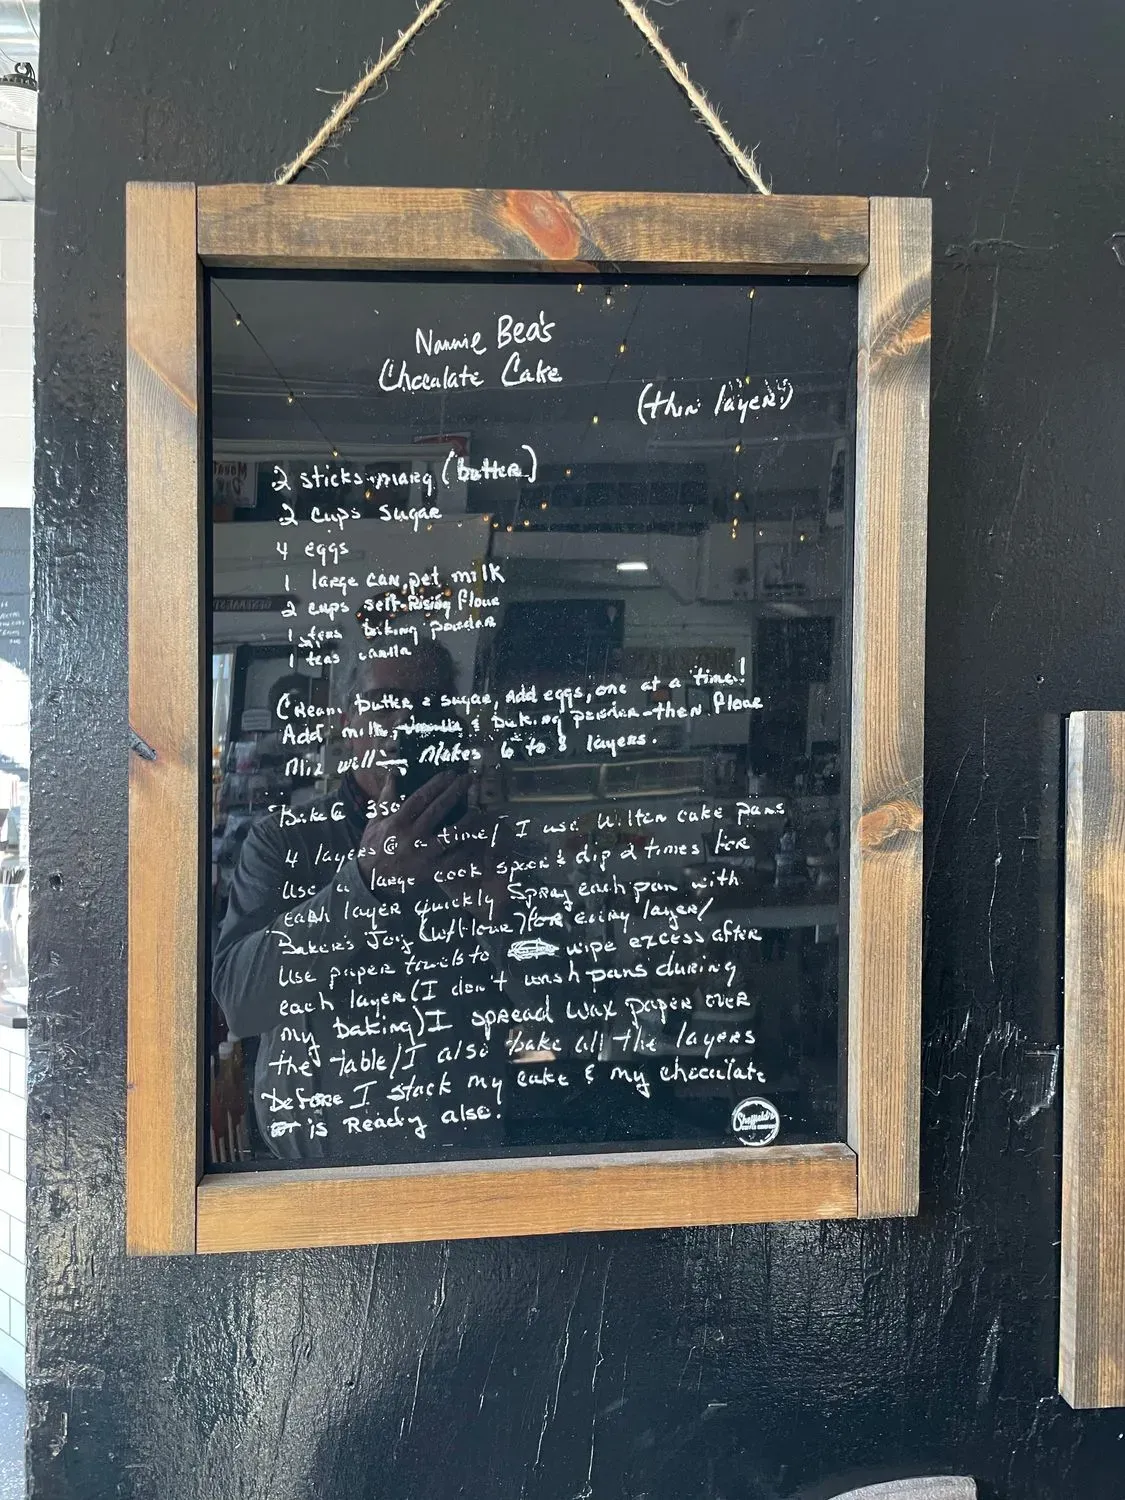 Nannie Bea's
Chocalate Cake
(thin layers)
2 sticks marg (butter)
2 cups sugar
4 eggs
1 large can, pet milk
2 cups self-Rising flour
1 teas baking powder
1 teas vanilla
Cream butter & sugar, Add eggs, one at a time!
Add milk, vanilla & baking powder-then flour
Mix well- Makes 6 to 8 layers.
Bake @ 350°
4 layers @ a time/ I use Wilten cake pans
Use a large cook spoon & dip 2 times for
each layer quickly Spray each pan with
Baker's Joy (w/flour) for every layer/
Use paper towels to wipe excess after
each layer (I don't wash pans during
my baking) I spread wax paper over
the table/I also bake all the layers
before I stack my cake & my chocalate
is Ready also.
Sheffield's
GENERAL